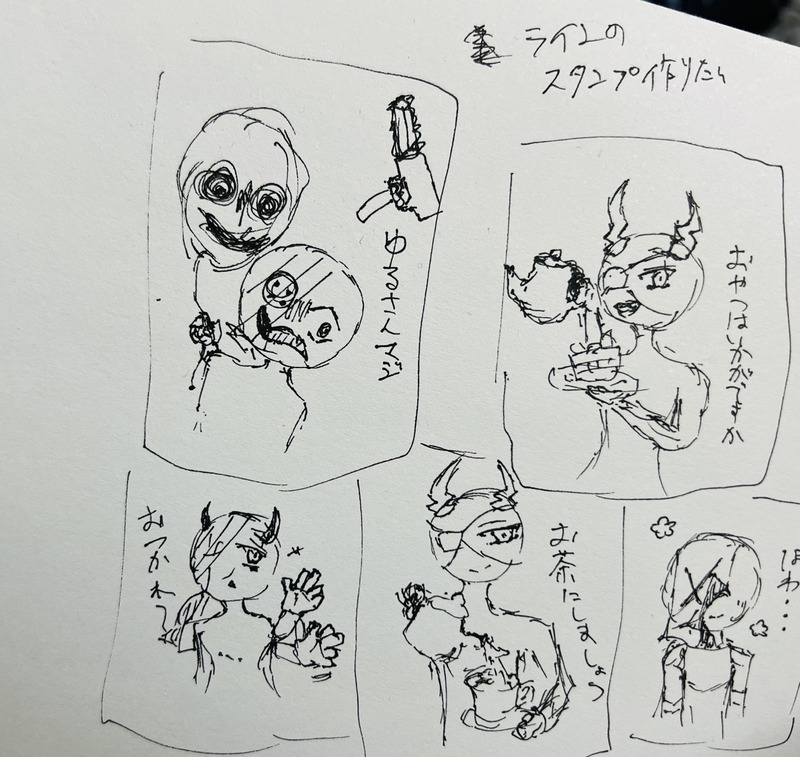 ラインの
スタンプ作りたい
ゆるさんマジ
おやつはいかがですか
おつかれ〜
お茶にしましょう
ほわ・・・